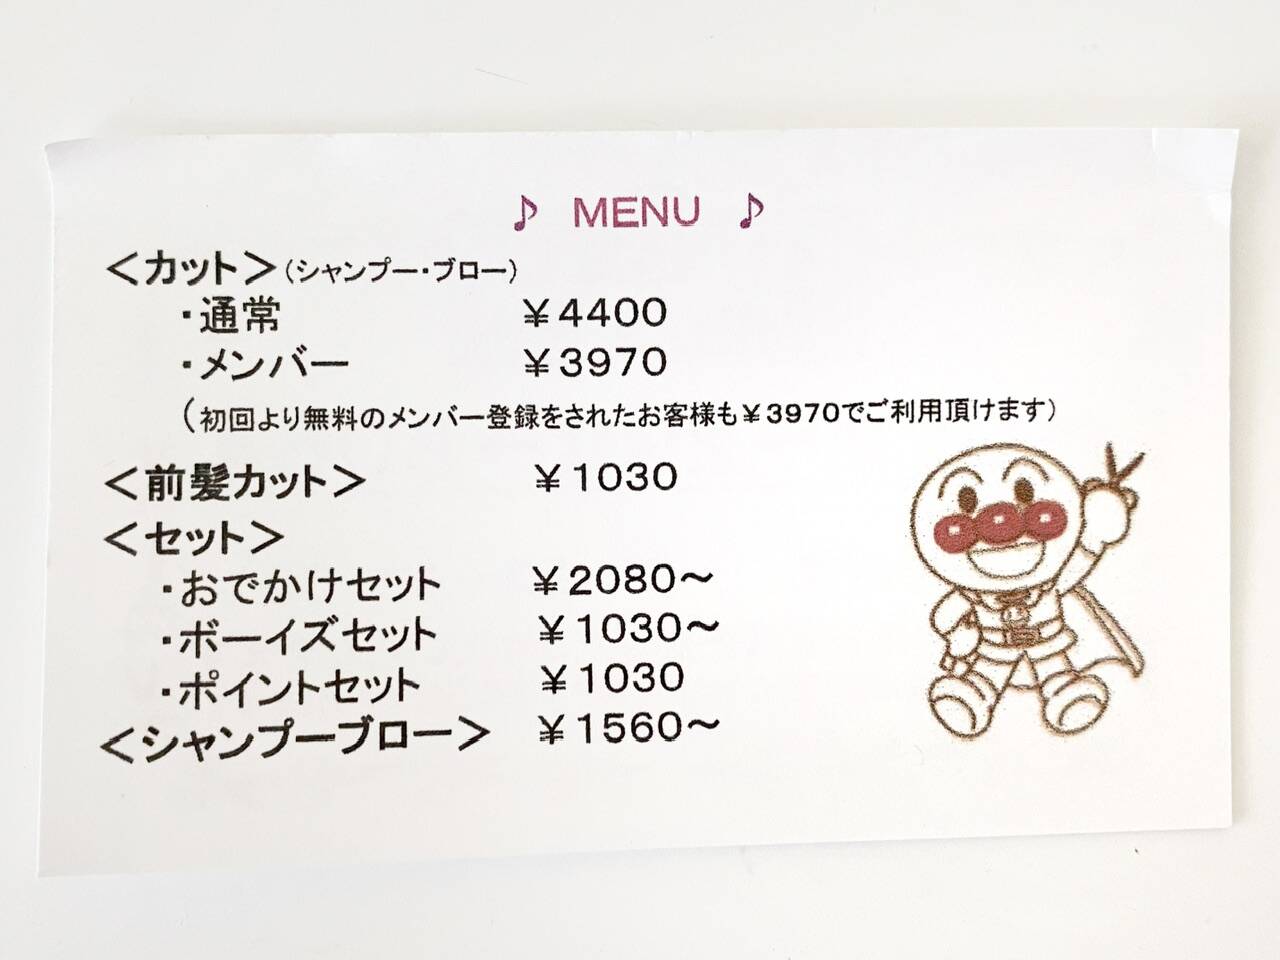 ♪ MENU ♪
＜カット＞（シャンプー・ブロー）
・通常 ￥4400
・メンバー ￥3970
（初回より無料のメンバー登録をされたお客様も￥3970でご利用頂けます）
＜前髪カット＞ ￥1030
＜セット＞
・おでかけセット ￥2080～
・ボーイズセット ￥1030～
・ポイントセット ￥1030
＜シャンプーブロー＞ ￥1560～